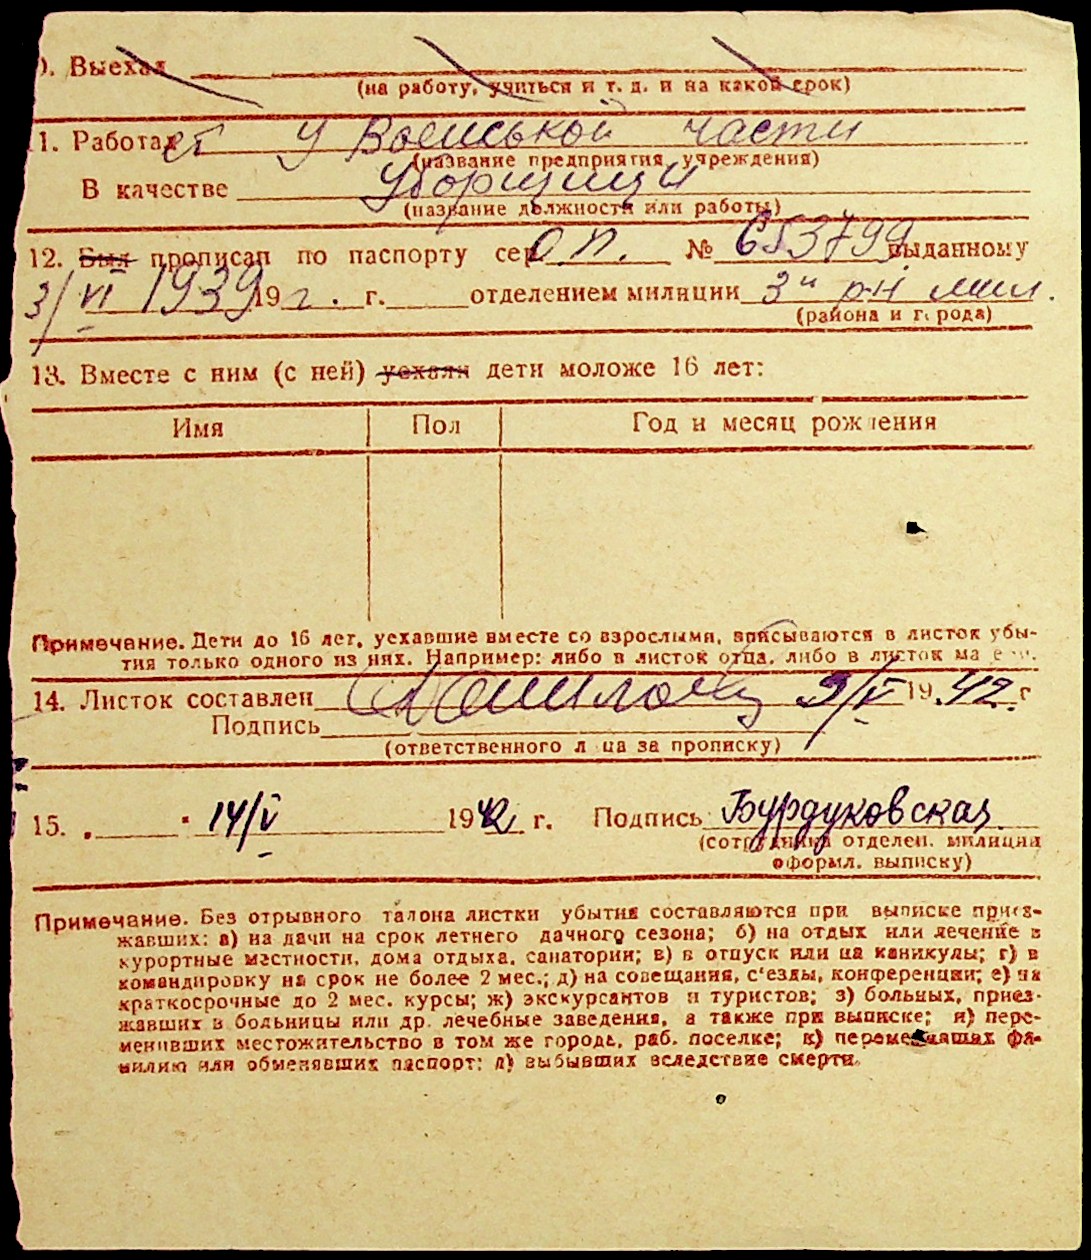 0. Выехал
(на работу, учиться и т. д. и на какой срок)
11. Работает у Воиськой части
(название предприятия, учреждения)
В качестве уборщици
(название должности или работы)
12. Был прописан по паспорту сер. О.П. № 653799 выданному
3/VI 1939 19 г. г. отделением милиции 3й р-н мил.
(района и города)
13. Вместе с ним (с ней) уехали дети моложе 16 лет:
Имя Пол Год и месяц рождения
Примечание. Дети до 16 лет, уехавшие вместе со взрослыми, вписываются в листок убы-
тия только одного из них. Например: либо в листок отца, либо в листок матери.
14. Листок составлен 9/V 1942. г
Подпись
(ответственного лица за прописку)
15. „ " 14/V 1942 г. Подпись Бурдуковская
(сотрудника отделен. милиции
оформл. выписку)
Примечание. Без отрывного талона листки убытия составляются при выписке приез-
жавших: а) на дачи на срок летнего дачного сезона; б) на отдых или лечение в
курортные местности, дома отдыха, санатории; в) в отпуск или на каникулы; г) в
командировку на срок не более 2 мес.; д) на совещания, с'езды, конференции; е) на
краткосрочные до 2 мес. курсы; ж) экскурсантов и туристов; з) больных, приез-
жавших в больницы или др. лечебные заведения, а также при выписке; и) пере-
менивших местожительство в том же городе, раб. поселке; к) переменивших фа-
милию или обменявших паспорт; л) выбывших вследствие смерти.